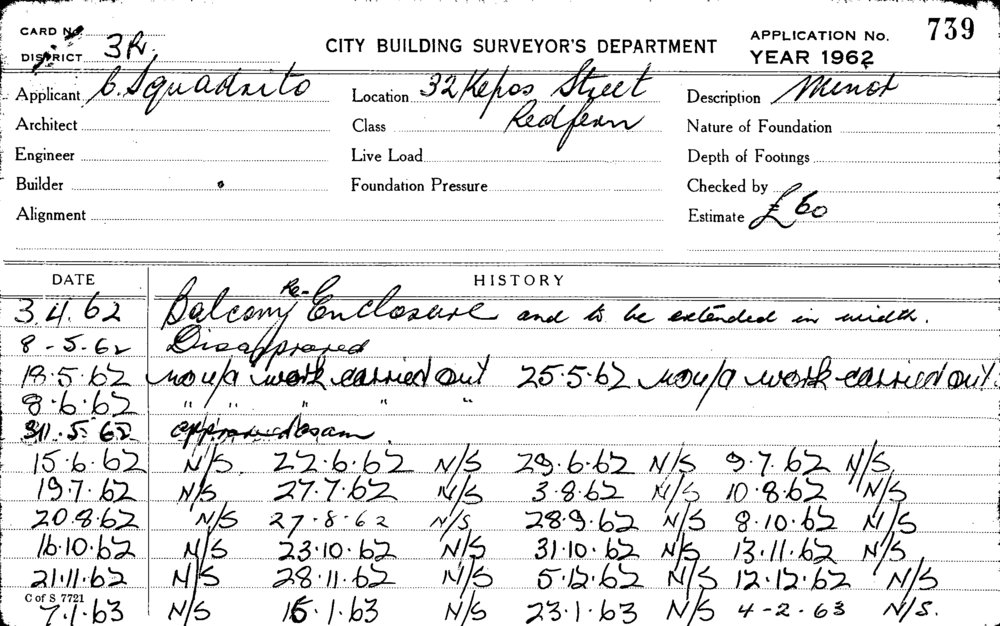 CARD No.
DISTRICT 3R.
CITY BUILDING SURVEYOR'S DEPARTMENT
APPLICATION No. 739
YEAR 1962
Applicant C. Squadrito Location 32 Kepos Street Description Minor
Architect Class Redfern Nature of Foundation
Engineer Live Load Depth of Footings
Builder Foundation Pressure Checked by
Alignment Estimate £60
DATE HISTORY
3.4.62 Balcony Re-Enclosure and to be extended in width.
8-5-62 Disapproved
18.5.62 no u/a work carried out 25.5.62 no u/a work carried out.
8.6.62 " " " " "
31.5.62 approved
15.6.62 N/S. 22.6.62 N/S 29.6.62 N/S 9.7.62 N/S.
19.7.62 N/S 27.7.62 N/S 3.8.62 N/S 10.8.62 N/S
20.8.62 N/S 27.8.62 N/S 28.9.62 N/S 8.10.62 N/S
16.10.62 N/S 23.10.62 N/S 31.10.62 N/S 13.11.62 N/S
21.11.62 N/S 28.11.62 N/S 5.12.62 N/S 12.12.62 N/S
C of S 7721
7.1.63 N/S 15.1.63 N/S 23.1.63 N/S 4-2-63 N/S.